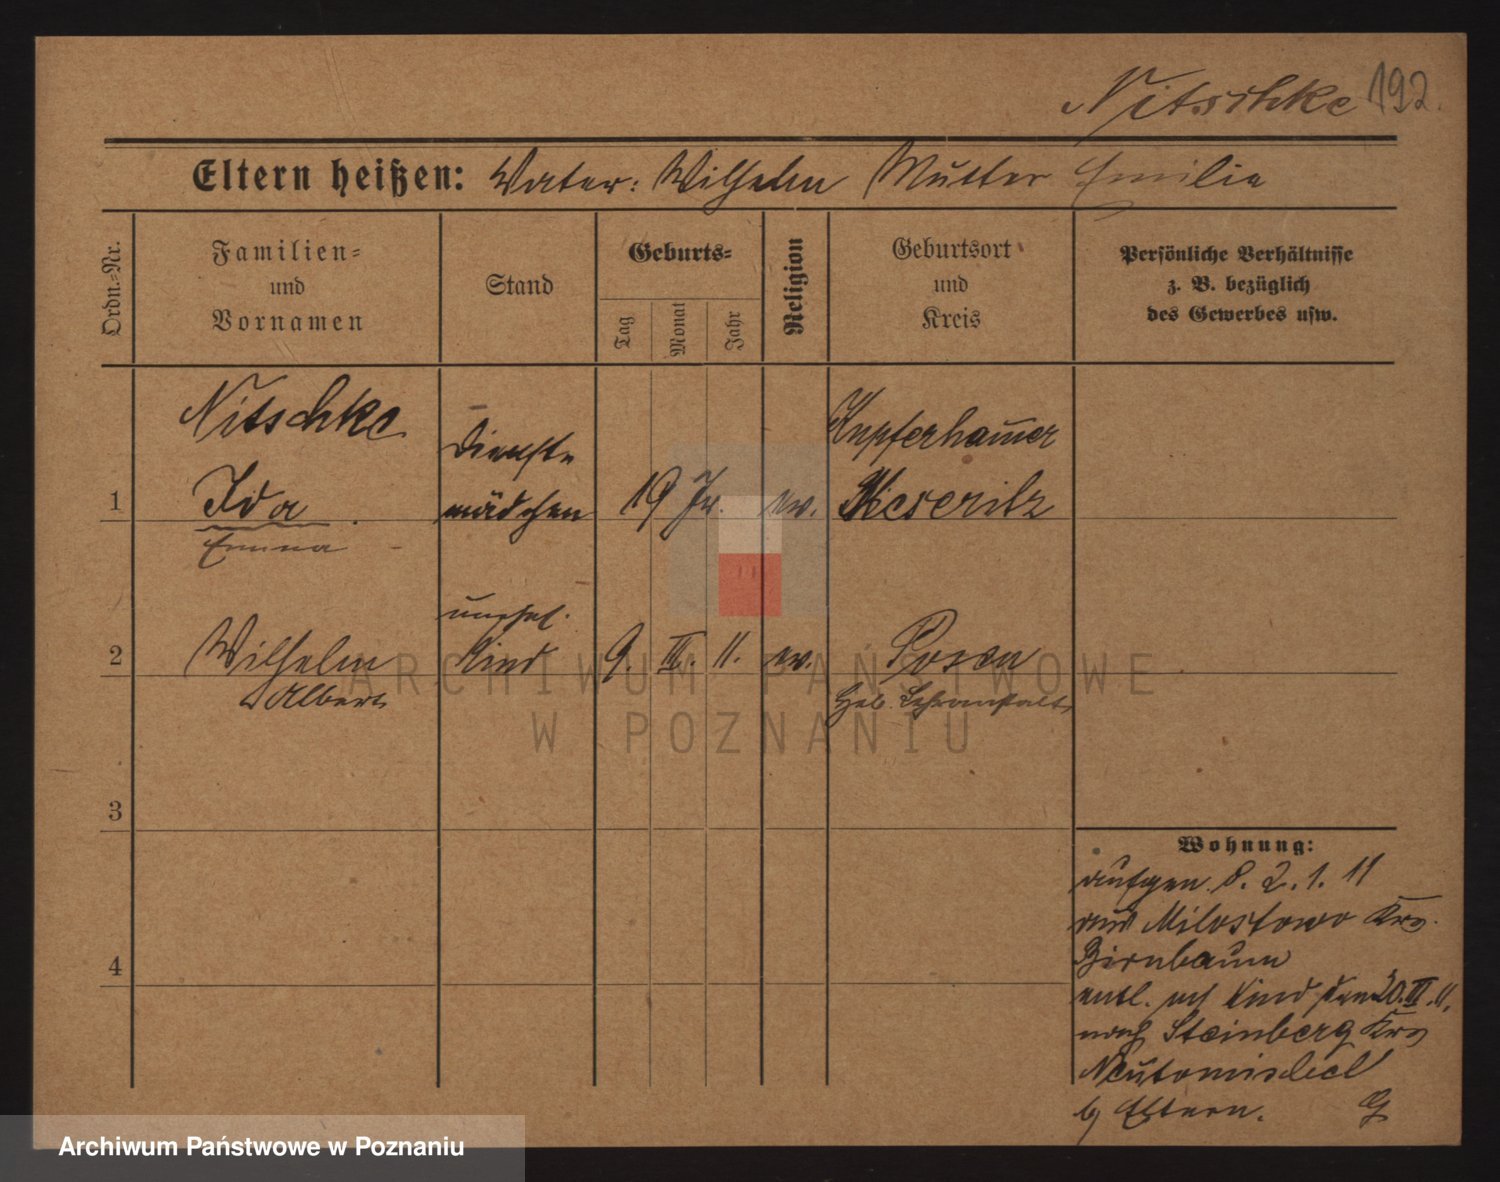 Nitschke 192.
Eltern heißen: Vater: Wilhelm Mutter Emilie
Ordn.-Nr.
Familien-
und
Vornamen
Stand
Geburts-
Tag
Monat
Jahr
Religion
Geburtsort
und
Kreis
Persönliche Verhältnisse
z. B. bezüglich
des Gewerbes usw.
Nitschke
Dienst-
Kupferham̅er
1 Ida mädchen 19 Jr. ev. Meseritz
Emma
unehel.
2 Wilhelm Kind 9. III. 11. ev. Posen
Albert
Heb. Lehranstalt
3
4
Wohnung:
aufgen. d. 2. 1. 11
aus Milostowo Krs.
Birnbaum
entl. mit Kind den 20. III. 11.
nach Steinberg Krs
Neutomischel
b/ Eltern. G
ARCHIWUM PAŃSTWOWE
W POZNANIU
Archiwum Państwowe w Poznaniu